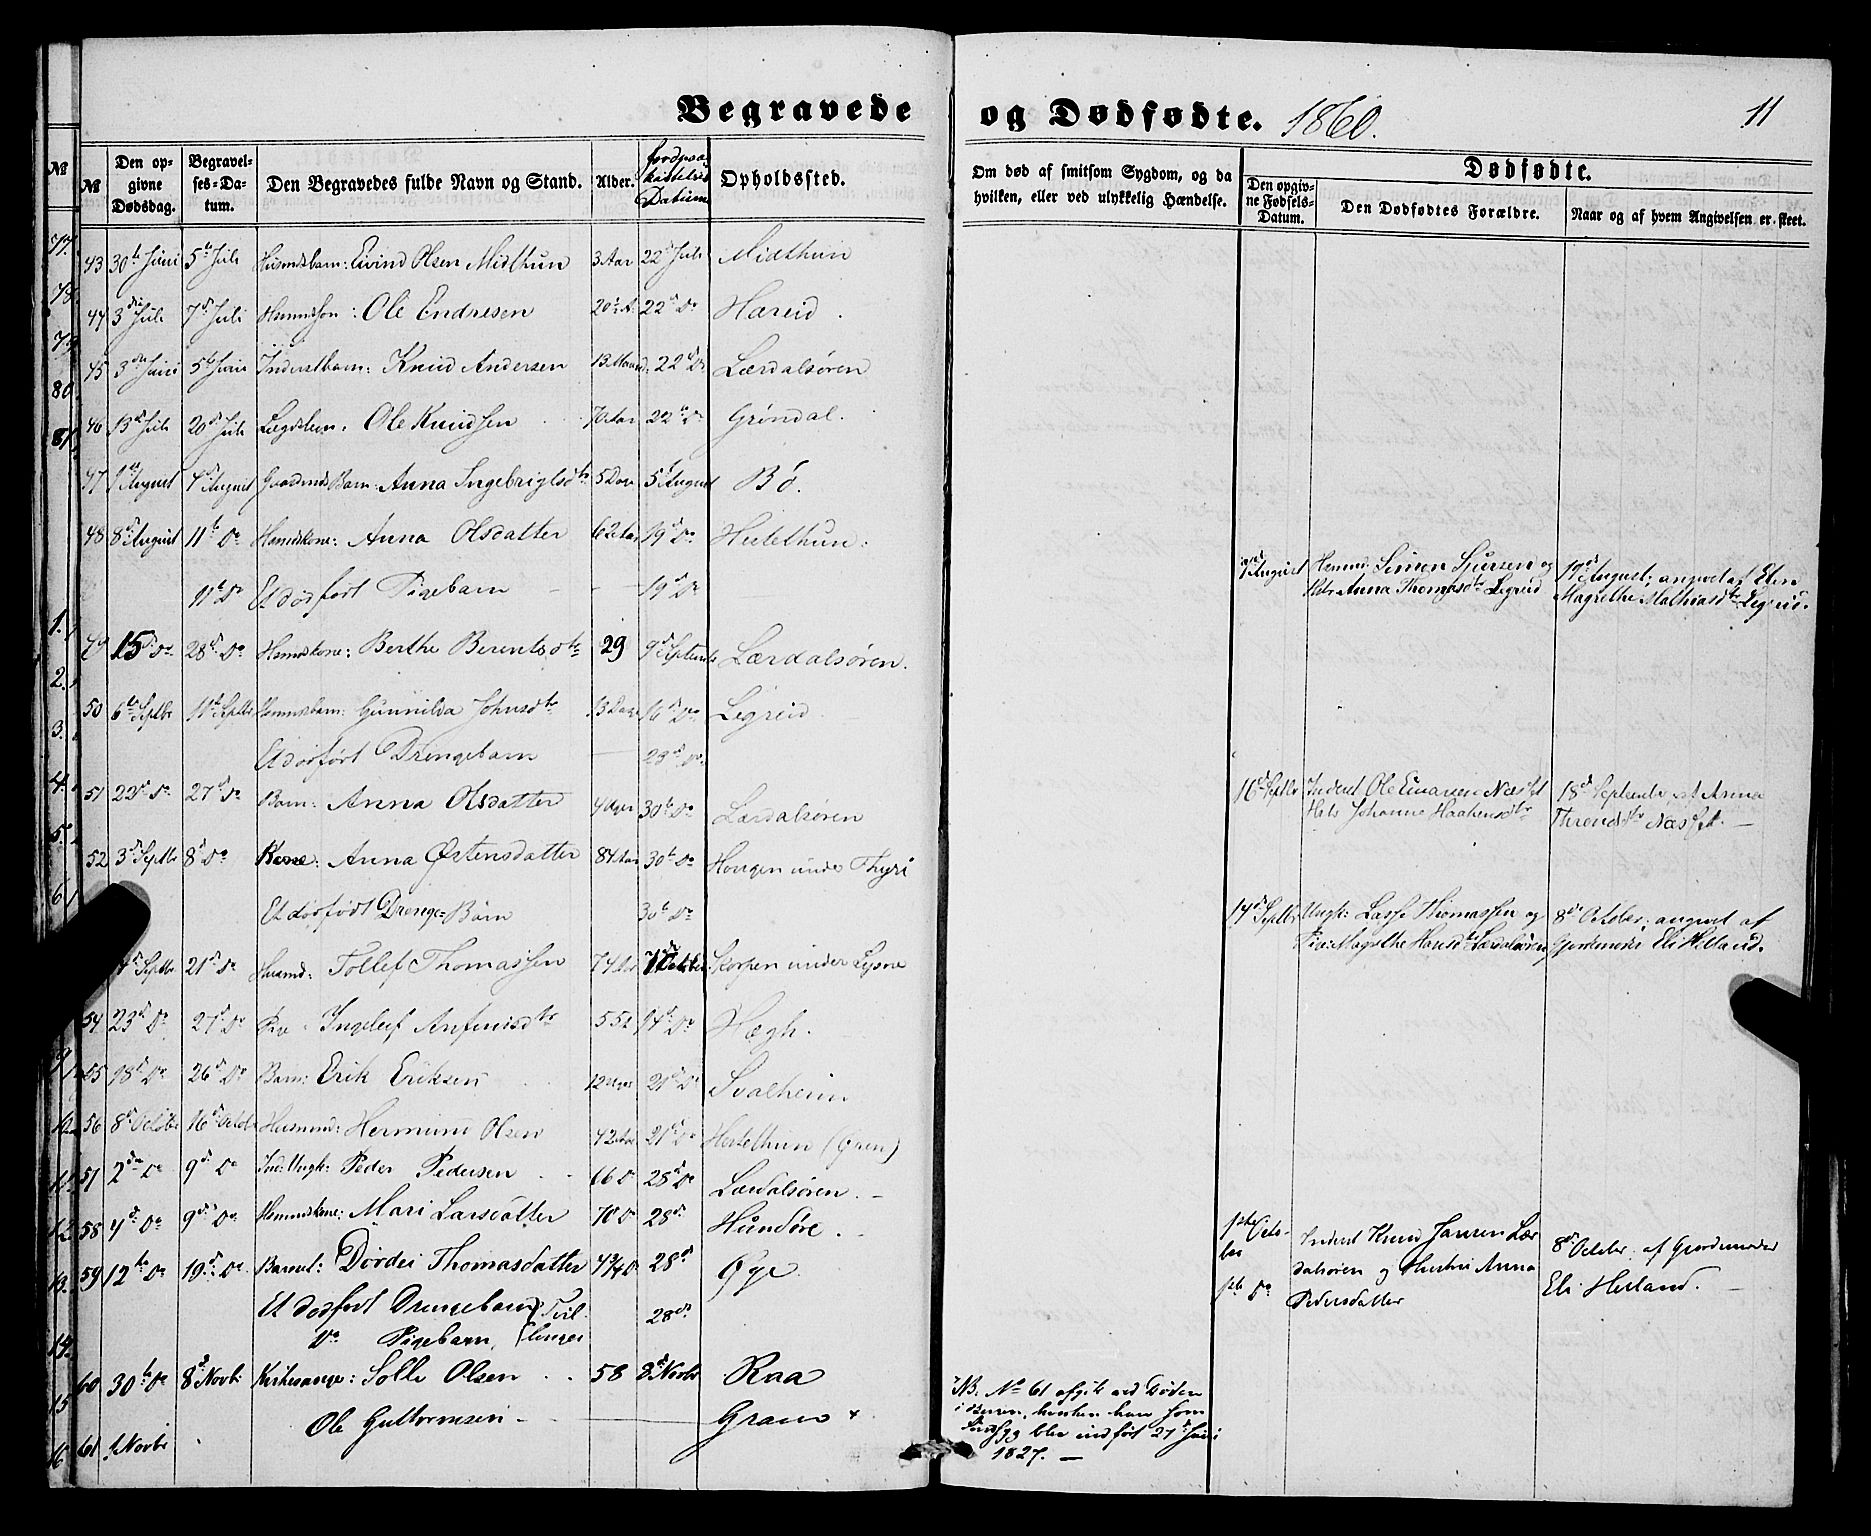 Begravede og Dødfødte. 1860. 11
№ Den opgivne Dødsdag. Begravelses-Datum. Den Begravedes fulde Navn og Stand. Alder. Jordpaakastelses Datum Opholdssted. Om død af smitsom Sygdom, og da hvilken, eller ved ulykkelig Hændelse. Dødfødte. Den opgivne Fødsels-Datum. Den Dødfødtes Forældre. Naar og af hvem Angivelsen er skeet.
43 30te Juni 5te Juli Husmdsbarn: Eivind Olsen Midthun 3 Aar 22d Juli Midthun
44 3die Juli 7d Juli Husmdsøn: Ole Endresen 20 A. 22d Do Hæreid.
45 3die Juni 5te Juni Inderstbarn: Knud Andersen 13 Maaned. 22d Do Lærdalsøren
46 13d Juli 20d Juli Lægdslem: Ole Knudsen 70 Aar 22d Do Gröndal.
47 1ste August 4d August Gaardmds Barn: Anna Ingebrigtsdtr 5 Dage 5t August Bö.
48 8d August 11te Do Husmdskone: Anna Olsdatter 62 Aar 19d Do Hertethun.
11te Do Et dødfødt Pigebarn — 19d Do
August Husmd. Simon Sjursen og
Anna Thomasdtr Legreid
19d August, angivet af Elen
Magrethe Mathiasdtr Legreid.
49 15d Do 28d Do Husmdskone: Berthe Berentsdtr 29 9d Septembr Lærdalsøren.
50 6te Septbr 11te Septbr Husmdsbarn: Gunnilda Johnsdtr 13 Dage 16d Do Legreid
Et dødfødt Drengebarn — 23d Do
16d Septbr Inderst Ole Einarsen
Johanne Haakensdtr
18d Septembr, af Anna
51 22d Do 27d Do Barn: Anna Olsdatter 4 Uger 30te Do Lærdalsøren
52 3d Septbr 8d Do Kone: Anna Østensdatter 84 Aar 30te Do Hougen under Thyri
Et dødfødt Drenge-Barn 30te Do
14d Septbr Ungk: Lasse Thomassen og
Pige Magrethe Hansdtr Lærdalsören
8d October, angivet af
Gjordemoder Eli Hilland.
Septbr 21d Do Husmd: Tollef Thomassen 74 Aar 7de October Skorpen under Lysne
54 23d Do 27d Do Pige: Ingeleif Anfinsdtr 55 14d Do Hægh.
55 18d Do 26d Do Barn: Erik Eriksen 12 Uger 21d Do Svalheim
56 8d Octobr 16d Octobr Husmnd: Hermund Olsen 42 Aar 21d Do Hertethun (Øren)
57 2den Do 9d Do Ind: Ungk: Peder Pedersen 66 Do 28d Do Lærdalsøren.
58 4d Do 9d Do Husmdskone: Mari Larsdatter 70 Do 28d Hunderi.
59 12te Do 19d Do Barnet: Dørdei Thomasdatter 28d Øye
Et dødfødt Drengebarn } Tvil-
Do Pigebarn, } linger 28d
1ste Octo-
ber
1ste Do
Inderst Knud Jansen Lær-
dalsören og Hustru Anna
Pedersdatter
8d October, af Gjordemoder
Eli Hilland. —
60 30te Do 8d Novbr Kirkesanger: Solle Olsen 58 8d Novbr Raa
61 1 Novbr Ole Guttormsen — Gram +
NB: No 61 afgik ved Døden
i Bergen, hvorhen han som
blev indført 27d Juni
1827. —